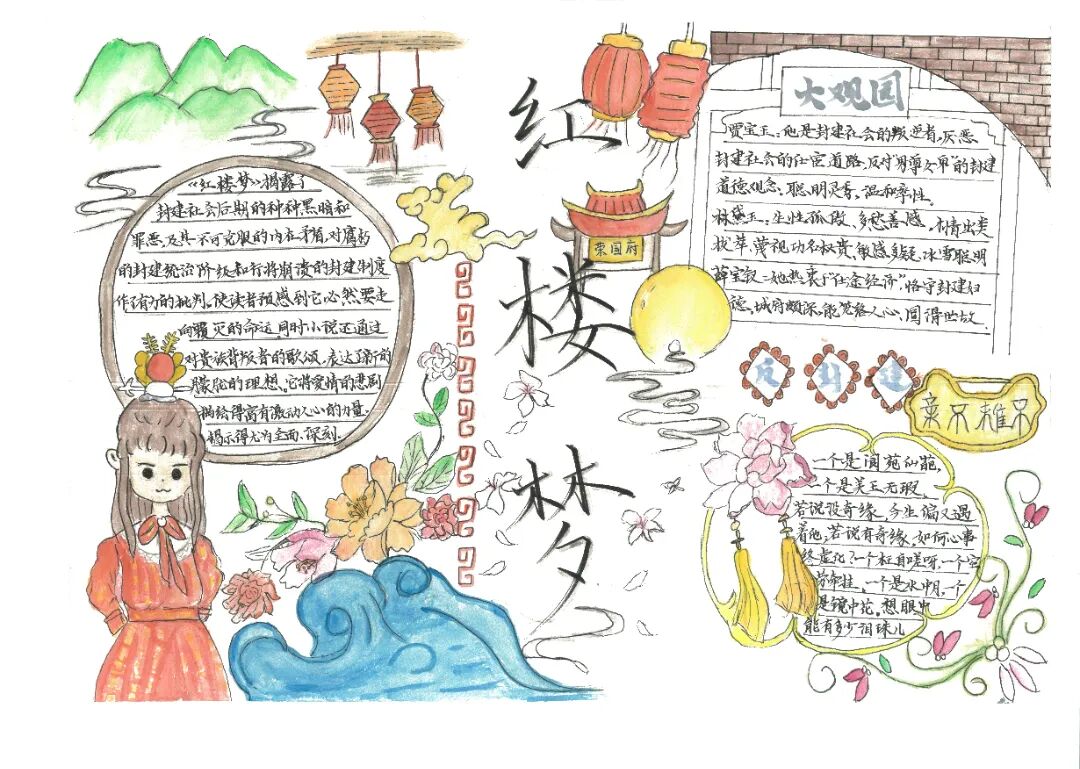 红楼梦
《红楼梦》揭露了
封建社会后期的种种黑暗和
罪恶,及其不可克服的内在矛盾,对腐朽
的封建统治阶级和行将崩溃的封建制度
作了有力的批判,使读者预感到它必然要走
向覆灭的命运.同时小说还通过
对贵族背叛者的歌颂,表达了新的
朦胧的理想.它将爱情的悲剧
描绘得富有激动人心的力量.
揭示得尤为全面、深刻.
荣国府
大观园
贾宝玉:他是封建社会的叛逆者,厌恶
封建社会的仕宦道路,反对"男尊女卑"的封建
道德观念、聪明灵秀,温和率性.
林黛玉:生性孤傲、多愁善感,才情出类
拔萃,蔑视功名权贵,敏感多疑.冰雪聪明
薛宝钗:她热衷于"仕途经济",恪守封建妇
德,城府颇深,能笼络人心,圆得世故.
反封建
一个是阆苑仙葩,
一个是美玉无瑕.
若说没奇缘,今生偏又遇
着他;若说有奇缘,如何心事
终虚化?一个枉自嗟呀,一个空
劳牵挂.一个是水中月,一个
是镜中花.想眼中
能有多少泪珠儿